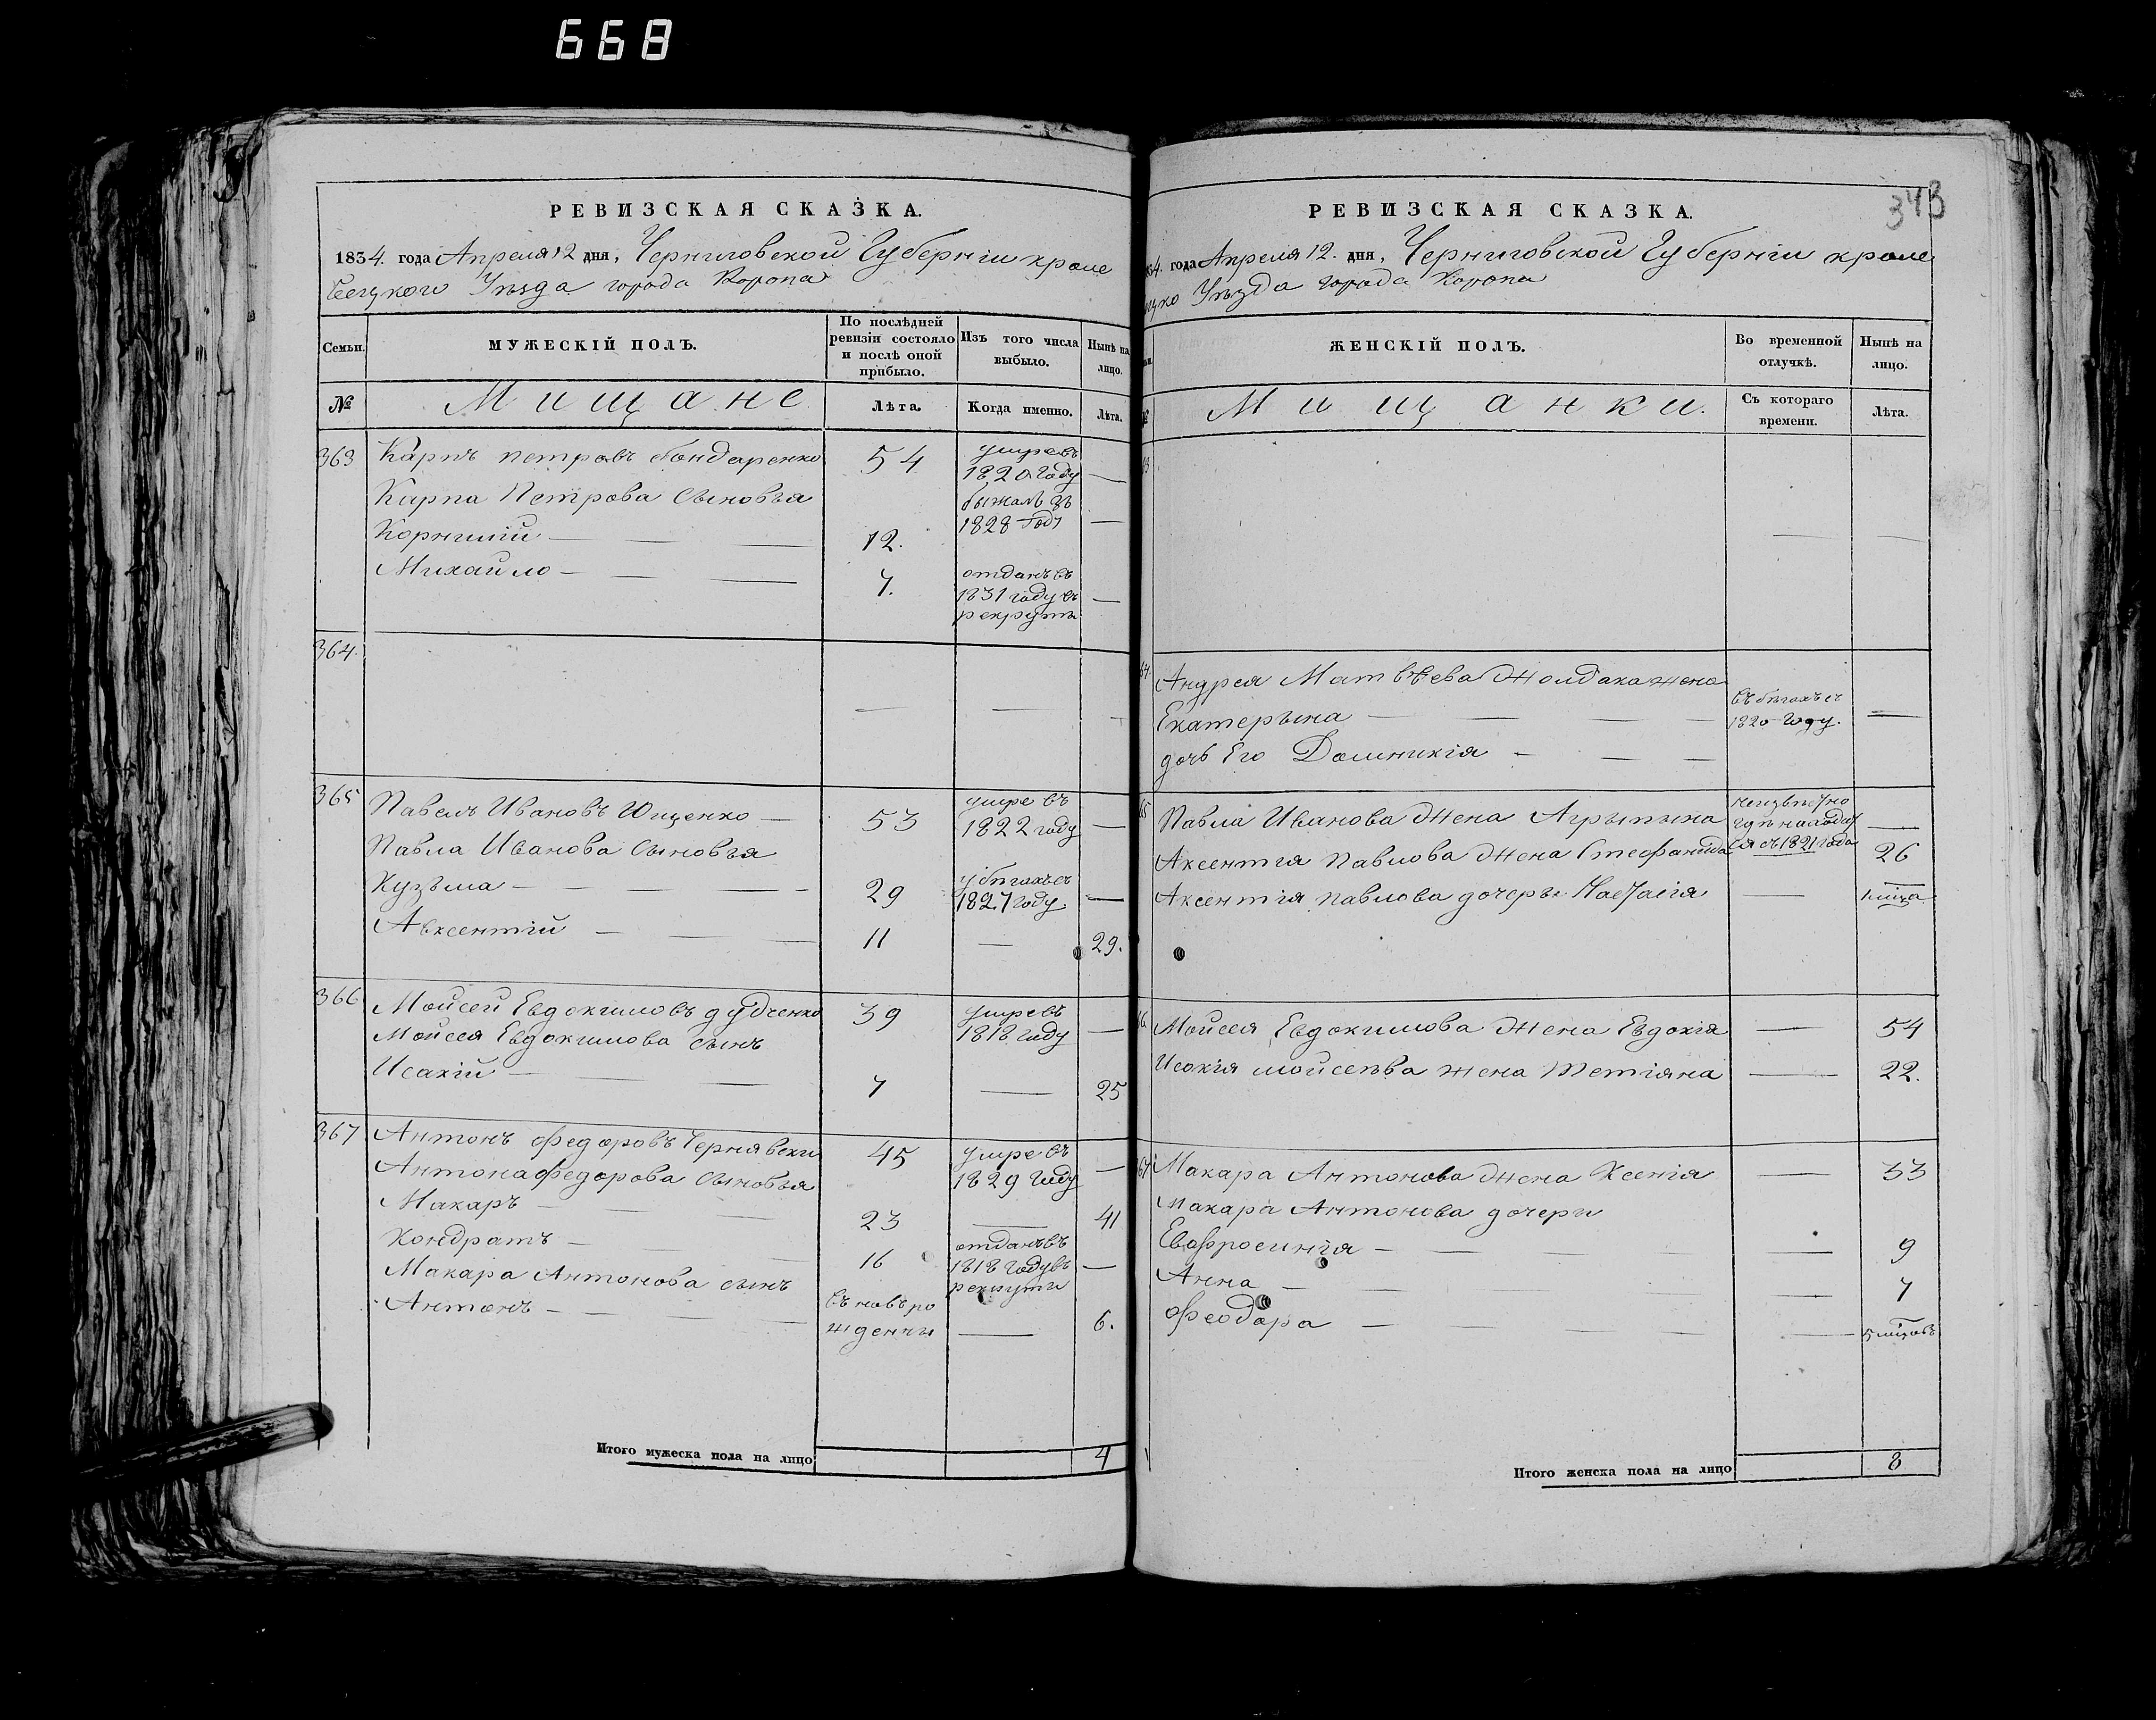 668
РЕВИЗСКАЯ СКАЗКА.
1834. года Апреля 12 дня, Черниговской Губерніи кроле
вецкого Уѣзда города Коропа
Семьи. МУЖЕСКІЙ ПОЛЪ. По послѣдней ревизіи состояло и послѣ оной прибыло. Изъ того числа выбыло. Нынѣ на лицо.
№ Мищане Лѣта. Когда именно. Лѣта.
363 Карпъ петровъ бондаренко 54 умре въ 1820 году —
Карпа Петрова сыновья
Корнилій — — — 12. бѣжалъ въ 1828 году —
Михайло — — — 7. отданъ въ 1831 году въ рекруты —
364. — — —
365 Павелъ Ивановъ Ющенко — 53 умре въ 1822 году —
Павла Иванова сыновья
Кузьма — — — — 29 у бѣгахъ съ 1827 году —
Авксентій — — — 11 — 29.
366 Мойсей Евдокимовъ дудченко 39 умре въ 1818 году —
Мойсея Евдокимова сынъ
Исакій — — 7 — 25
367 Антонъ Федоровъ Чернявски 45 умре въ 1829 году —
Антона Федорова сыновья
Макаръ — — — 23 — 41
Кондратъ — — 16 отданъ въ 1818 году въ рекруты —
Макара Антонова сынъ
Антонъ — — — въ новь ро
жденны — 6.
Итого мужеска пола на лицо 4
343
РЕВИЗСКАЯ СКАЗКА.
34. года Апреля 12. дня, Черниговской Губерніи кроле
ецко Уѣзда города Коропа
ЖЕНСКІЙ ПОЛЪ. Во временной отлучкѣ. Нынѣ на лицо.
№ Мищанки. Съ котораго времени. Лѣта.
63 — —
64. Андрея Матвѣева Жолдака жена
Екатерына — — — въ бѣгахъ съ 1820 году. —
дочь Его Домникія — — —
65 Павла Иванова Жена Агрыпына неизвѣстно гдѣ находит ся съ 1821 года —
Аксентія Павлова Жена Стефанида 26
Аксентія павлова дочеръ Настасія — 1 мѣца
66 Мойсея Евдокимова Жена Евдокія — 54
Исакія мойсеѣва жена Тетіяна — 22.
67 Макара Антонова Жена Ксенія — 33
Макара Антонова дочери
Евфросинія — — — — 9
Анна — — — — 7
Феодора — — — — 5 мѣцовъ
Итого женска пола на лицо 8